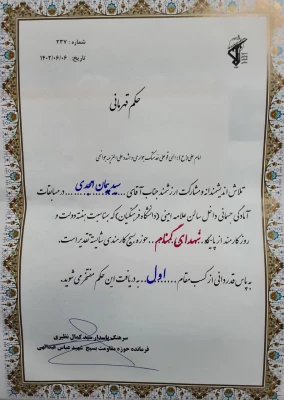 شماره : ۲۳۷
تاریخ: ۱۴۰۲/۰۶/۰۶
حکم قهرمانی
امام علی (ع):
تلاش اندیشمندانه و مشارکت ارزشمند جناب آقای ... سید پیمان احمدی ... در مسابقات
آمادگی جسمانی داخل سالن علامه امینی (دانشگاه فرهنگیان) که بمناسبت هفته دولت و
روز کارمند از پایگاه .. شهدای گمنام .. حوزه بسیج کارمندی شایسته تقدیر است.
به پاس قدردانی از کسب مقام .. اول .. به دریافت این حکم مفتخر می شوید.
سرهنگ پاسدار سید کمال نظیری
فرمانده حوزه مقاومت بسیج شهید عباس